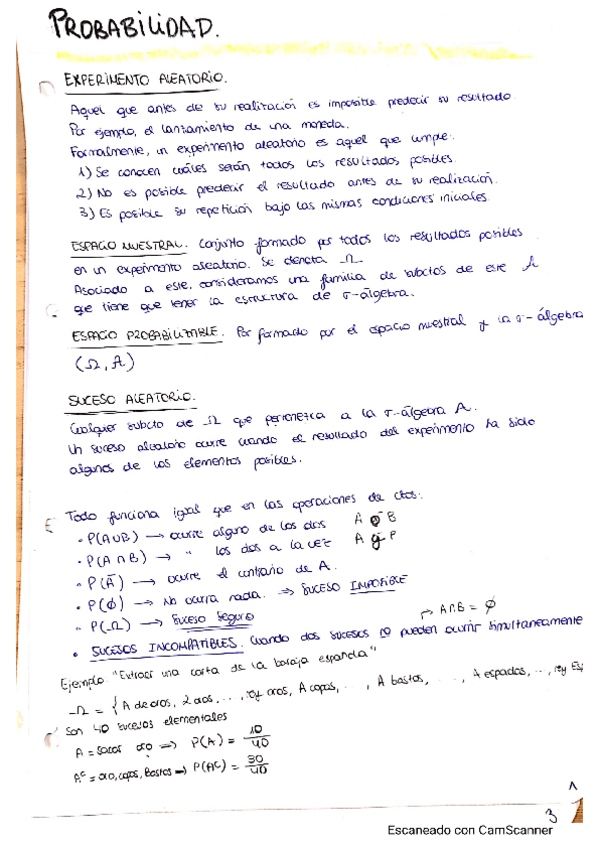 PROBABILIDAD.
EXPERIMENTO ALEATORIO.
Aquel que antes de su realización es imposible predecir su resultado.
Por ejemplo, el lanzamiento de una moneda.
Formalmente, un experimento aleatorio es aquel que cumple:
1) Se conocen cuáles serán todos los resultados posibles.
2) No es posible predecir el resultado antes de su realización.
3) Es posible su repetición bajo las mismas condiciones iniciales.
ESPACIO MUESTRAL. Conjunto formado por todos los resultados posibles
en un experimento aleatorio. Se denota Ω
Asociado a este, consideramos una familia de subctos de este A
que tiene que tener la estructura de σ-álgebra.
ESPACIO PROBABILIZABLE. Par formado por el espacio muestral y la σ-álgebra
(Ω, A)
SUCESO ALEATORIO.
Cualquier subcto de Ω que pertenezca a la σ-álgebra A.
Un suceso aleatorio ocurre cuando el resultado del experimento ha sido
algunos de los elementos posibles.
Todo funciona igual que en las operaciones de ctos:
· P(A∪B) → ocurre alguno de los dos A o B
· P(A∩B) → " los dos a la vez A y
· P(Ā) → ocurre el contrario de A.
· P(∅) → No ocurra nada. ⇒ SUCESO IMPOSIBLE
· P(Ω) → Suceso Seguro
→ A∩B = ∅
· SUCESOS INCOMPATIBLES. Cuando dos sucesos no pueden ocurrir simultaneamente
Ejemplo "Extraer una carta de la baraja española"
Ω = { A de oros, 2 oros, ..., rey oros, A copas, ..., A bastos, ..., A espadas, ..., rey Es
Son 40 sucesos elementales
A = sacar oro ⇒ P(A) = 10/40
Aᶜ = oro, copas, Bastos ⇒ P(Aᶜ) = 30/40
1
3
Escaneado con CamScanner